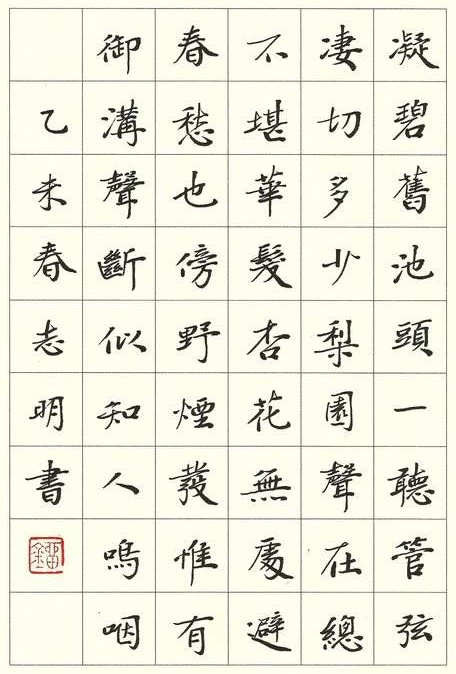 凝碧舊池頭一聽管弦
凄切多少梨園聲在總
不堪華髮杏花無處避
春愁也傍野煙發惟有
御溝聲斷似知人嗚咽
乙未春志明書